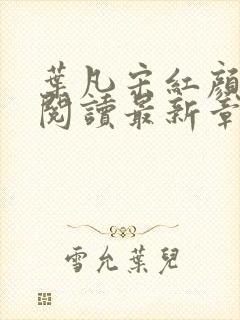 葉凡宋紅顏
閱讀最新章
雪允葉兒